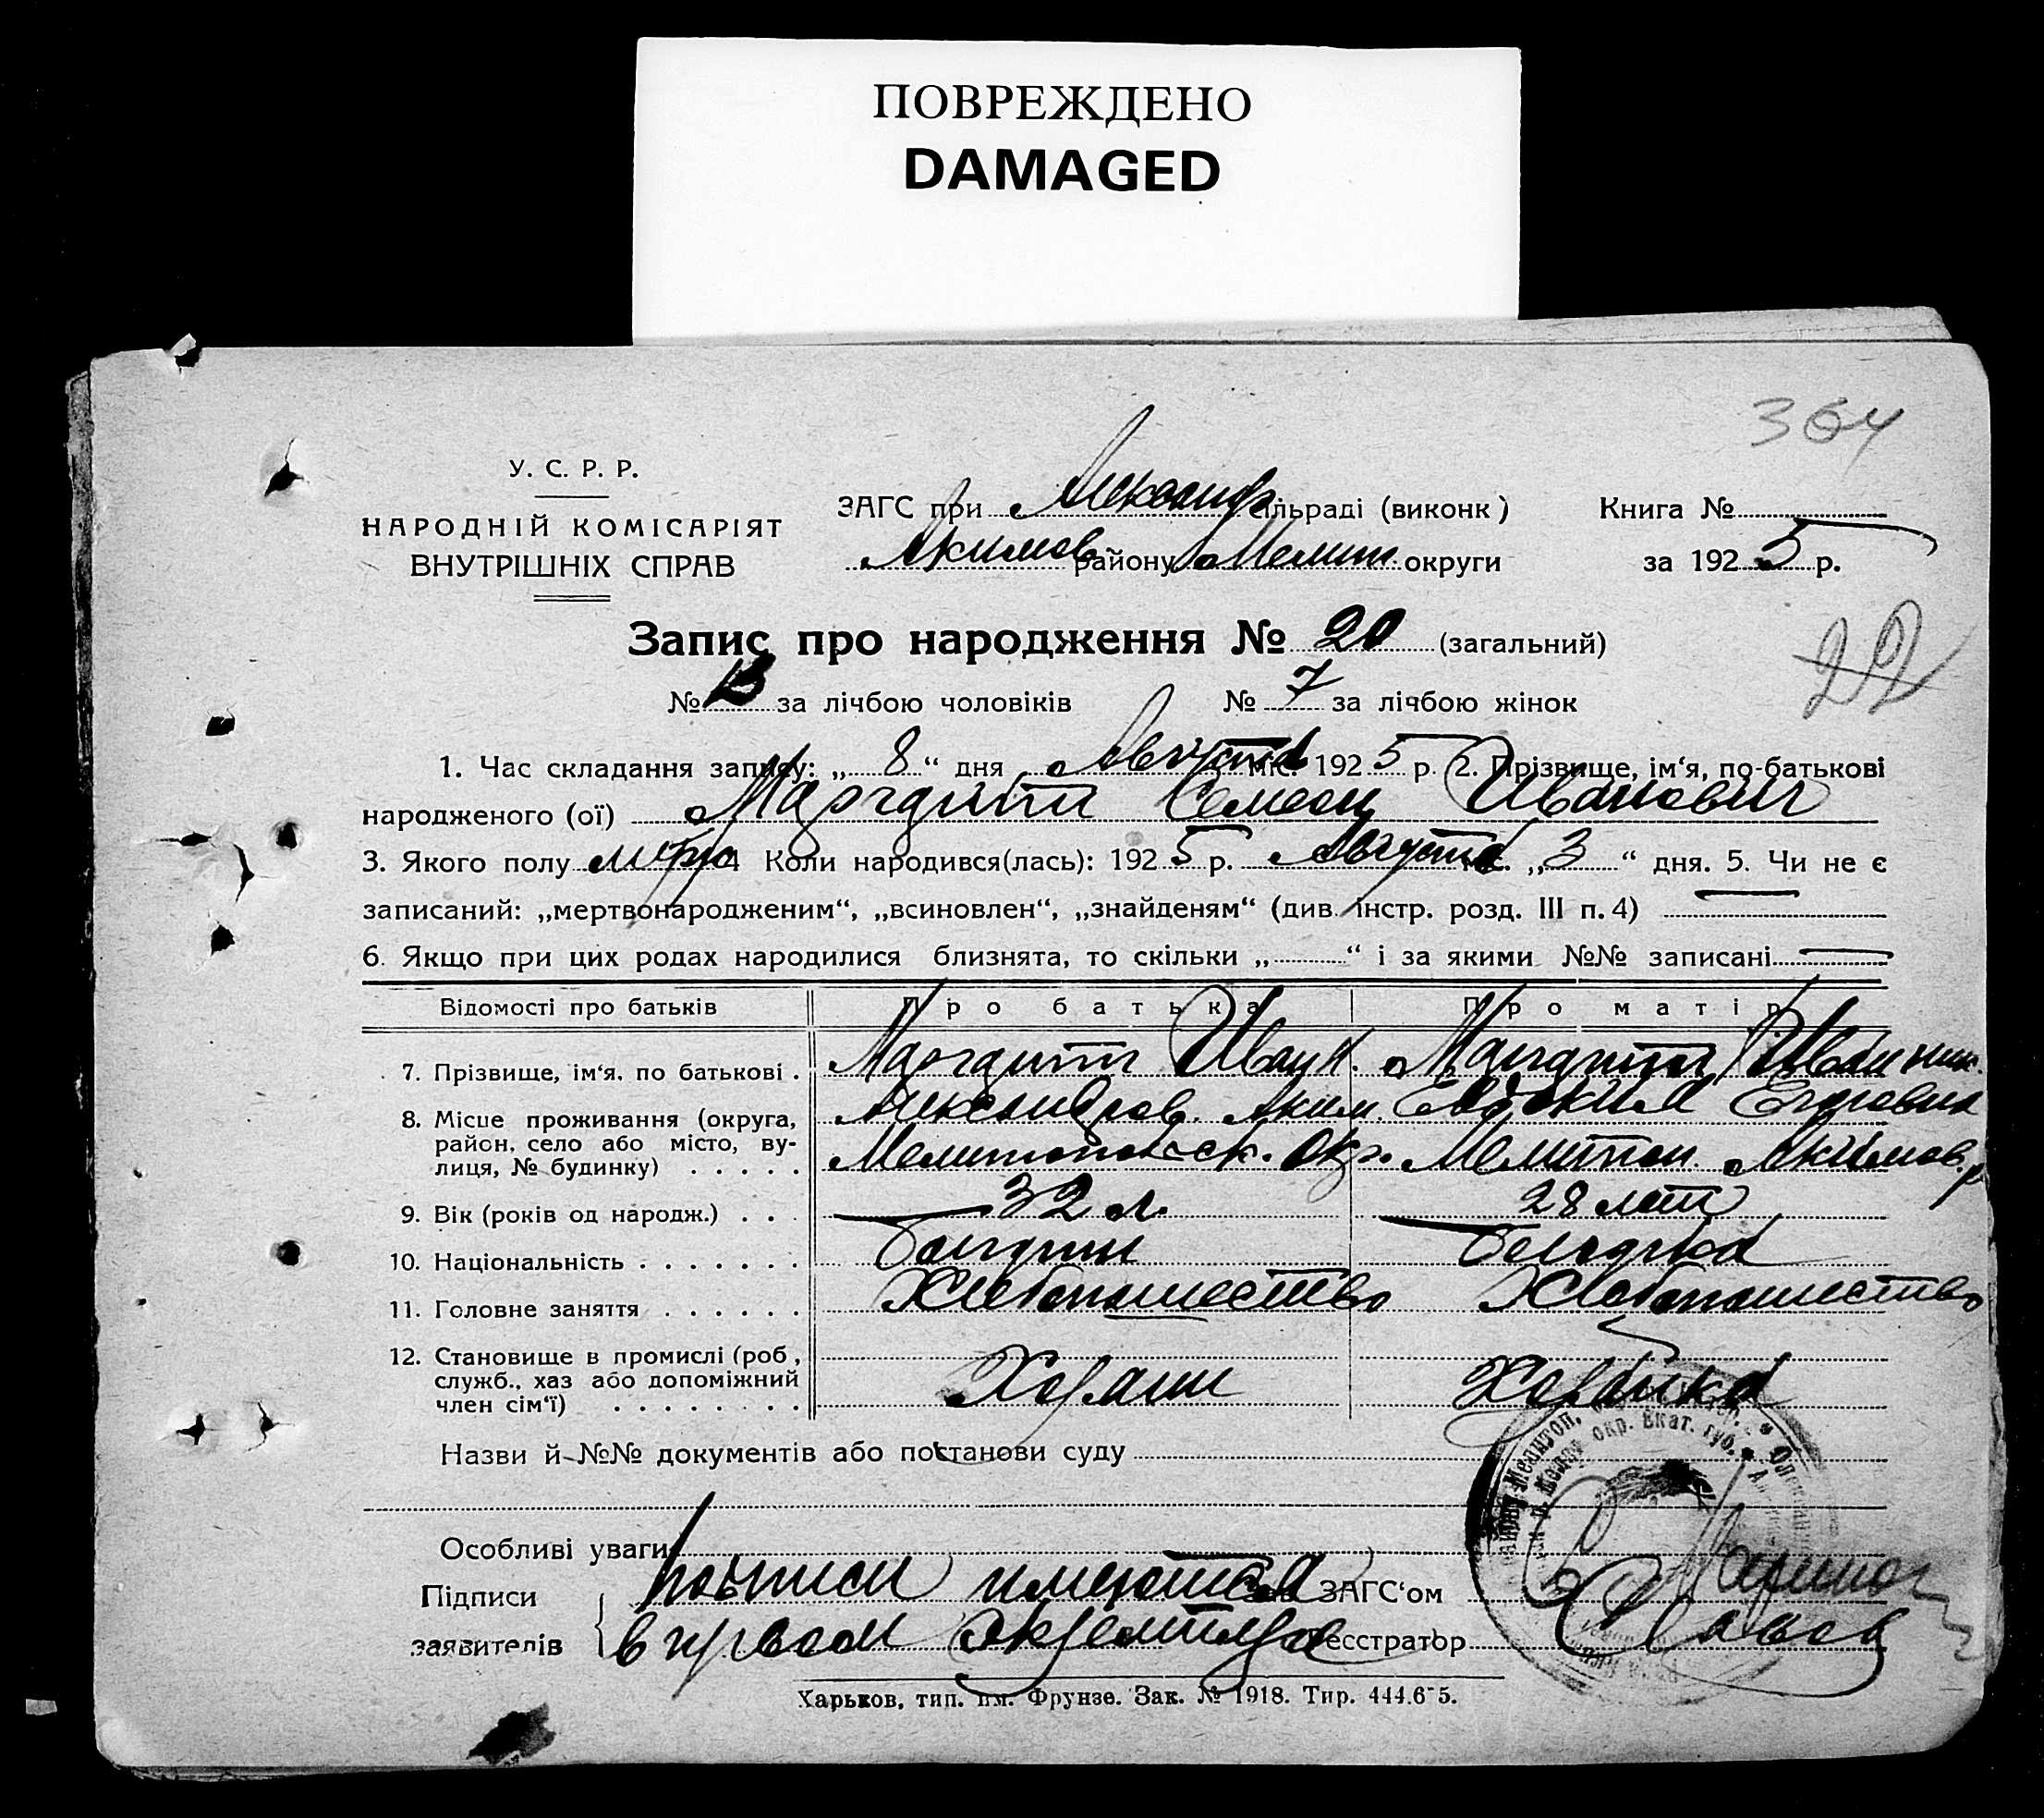 ПОВРЕЖДЕНО
DAMAGED
364
У. С. Р. Р.
НАРОДНІЙ КОМІСАРІЯТ
ВНУТРІШНІХ СПРАВ
ЗАГС при Александр сільраді (виконк)
Акимов району Мелит. округи
Книга №
за 1925 р.
Запис про народження № 20 (загальний)
22
№ 13 за лічбою чоловіків № 7 за лічбою жінок
1. Час складання запису: „8“ дня Августа міс. 1925 р. 2. Прізвище, ім‘я, по-батькові
народженого (ої) Маргарити Семеон Иванович
3. Якого полу муж. 4 Коли народився(лась): 1925 р. Августа міс. „3“ дня. 5. Чи не є
записаний: „мертвонародженим“, „всиновлен“, „знайденям“ (див. інстр. розд. III п. 4)
6. Якщо при цих родах народилися близнята, то скільки „ “ і за якими №№ записані
Відомості про батьків Про батька Про матір
7. Прізвище, ім‘я, по батькові . Маргарит Иван
8. Місце проживання (округа, район, село або місто, вулиця, № будинку) . . . . . Александров. Аким. Мелитопольск. Окр. Мелитоп. Акимов. р
9. Вік (років од народж.) . . . 32 л. 28 лет
10. Національність . . . . . . . болгарин болгарка
11. Головне заняття . . . . . . Хлебопашество Хлебопашество
12. Становище в промислі (роб, служб., хаз або допоміжний член сім‘ї) . . . . . . . .
Хозяин Хозяйка
Назви й №№ документів або постанови суду
окр. Екат. губ.
Особливі уваги
Підписи заявителів { подписи имеются в первом экземпляре
Зав. ЗАГС‘ом
Реєстратор
Харьков, тип. им. Фрунзе. Зак. № 1918. Тир. 444.6-5.